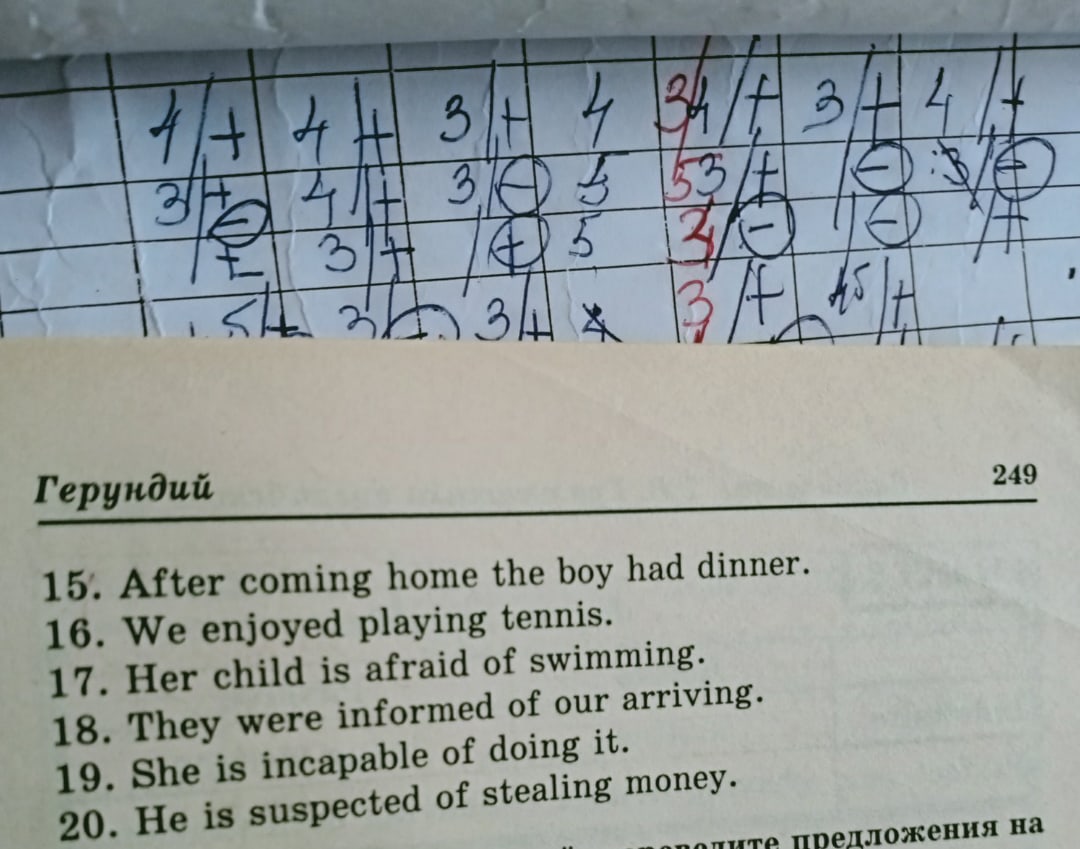 4/+ 4/+ 3/+ 4 4/+ 3/+ 4/+
3/+ 4/+ 3/- 5 53/+ /- /-
- 3/+ /+ 5 /- /- /+
3 /+ 45/+
5/+ 3/ 3/+
Герундий 249
15. After coming home the boy had dinner.
16. We enjoyed playing tennis.
17. Her child is afraid of swimming.
18. They were informed of our arriving.
19. She is incapable of doing it.
20. He is suspected of stealing money.
предложения на